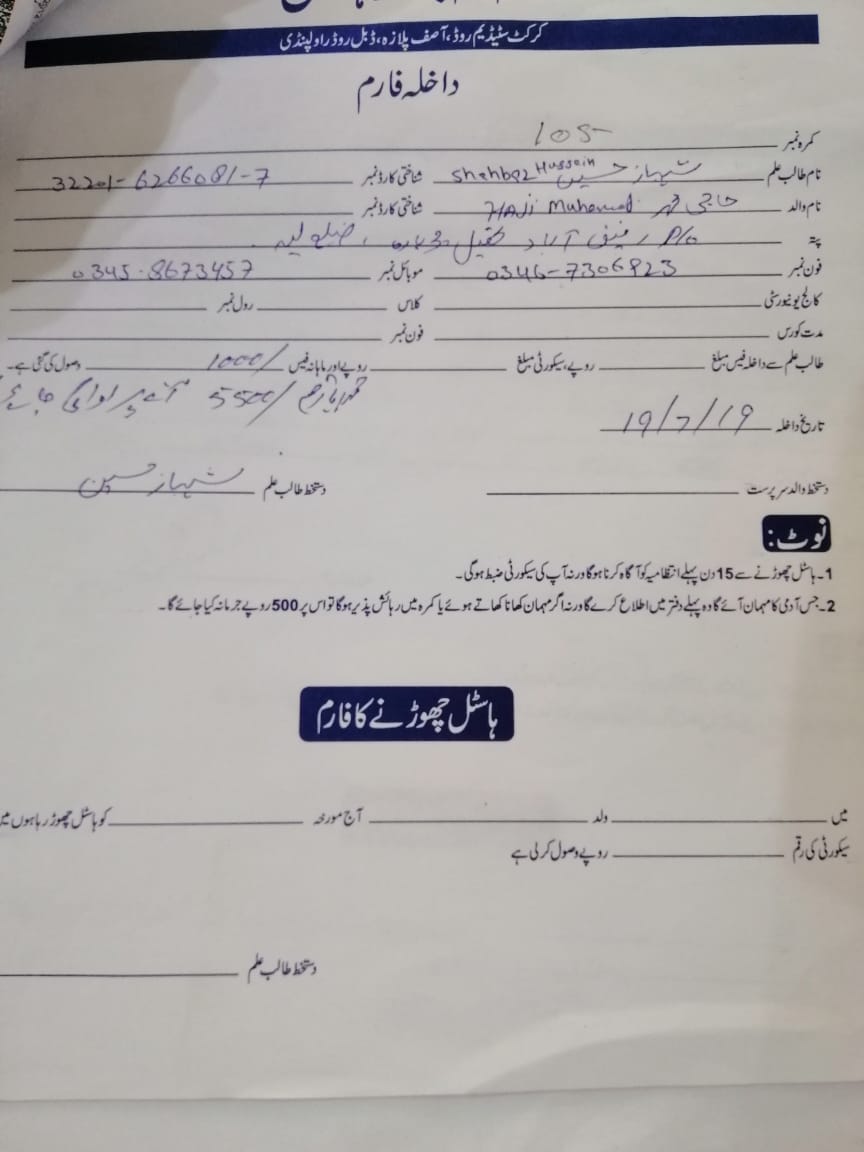 کرکٹ سٹیڈیم روڈ، آصف پلازہ، ڈبل روڈ راولپنڈی
داخلہ فارم
کمرہ نمبر 105
نام طالب علم شہباز حسین Shehbaz Hussain شناختی کارڈ نمبر 32201-6266081-7
نام والد حاجی محمد HAJi Muhammad شناختی کارڈ نمبر
پتہ P/o رفیق آباد تحصیل و ضلع لیہ
فون نمبر 0346-7306823 موبائل نمبر 0345-8673457
کالج یونیورسٹی کلاس رول نمبر
مدت کورس فون نمبر
طالب علم سے داخلہ فیس مبلغ روپے، سیکورٹی مبلغ روپے اور ماہانہ فیس 1000/ وصول کی گئی ہے۔
5500/ پر
تاریخ داخلہ 19/7/19
دستخط والد سرپرست دستخط طالب علم شہباز حسین
نوٹ:
1۔ ہاسٹل چھوڑنے سے 15 دن پہلے انتظامیہ کو آگاہ کرنا ہوگا ورنہ آپ کی سیکورٹی ضبط ہوگی۔
2۔ جس آدمی کا مہمان آئے گا وہ پہلے دفتر میں اطلاع کرے گا ورنہ اگر مہمان کھانا کھاتے ہوئے یا کمرہ میں رہائش پذیر ہوگا تو اس پر 500 روپے جرمانہ کیا جائے گا۔
ہاسٹل چھوڑنے کا فارم
میں ولد آج مورخہ کو ہاسٹل چھوڑ رہا ہوں میں
سیکورٹی کی رقم روپے وصول کر لی ہے
دستخط طالب علم